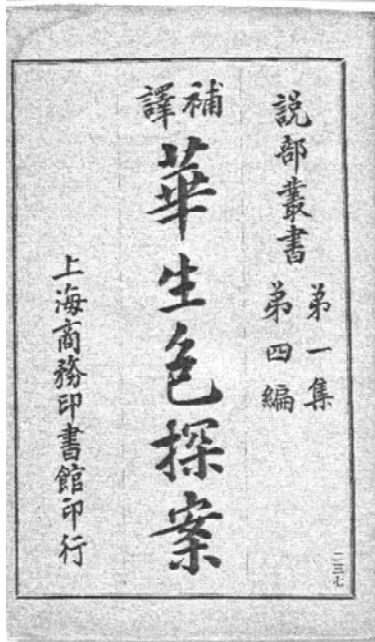 説部叢書
弟一集
弟四編
補譯
華生包探案
上海商務印書館印行
二三七